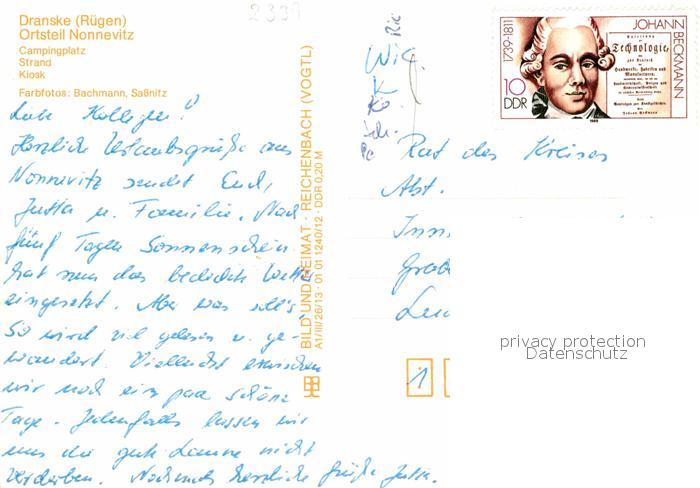 2339
Dranske (Rügen)
Ortsteil Nonnevitz
Campingplatz
Strand
Kiosk
Farbfotos: Bachmann, Saßnitz
Liebe Kollegen!
Herzliche Urlaubsgrüße aus
Nonnevitz sendet Euch,
Jutta u. Familie. Nach
fünf Tagen Sonnenschein
hat nun das bedeckte Wetter
eingesetzt. Aber was soll's,
So wird viel gelesen u. ge-
wandert. Vielleicht erwischen
wir noch ein paar schöne
Tage. Jedenfalls lassen wir
uns die gute Laune nicht
verderben. Nochmals herzliche Grüße Jutta.
BILD UND HEIMAT · REICHENBACH (VOGTL)
A1/III/26/13 · 01 01 1240/12 · DDR 0,20 M
1739-1811
JOHANN BECKMANN
Technologie,
10
DDR
Rat des Kreises
Abt.
privacy protection
Datenschutz
1